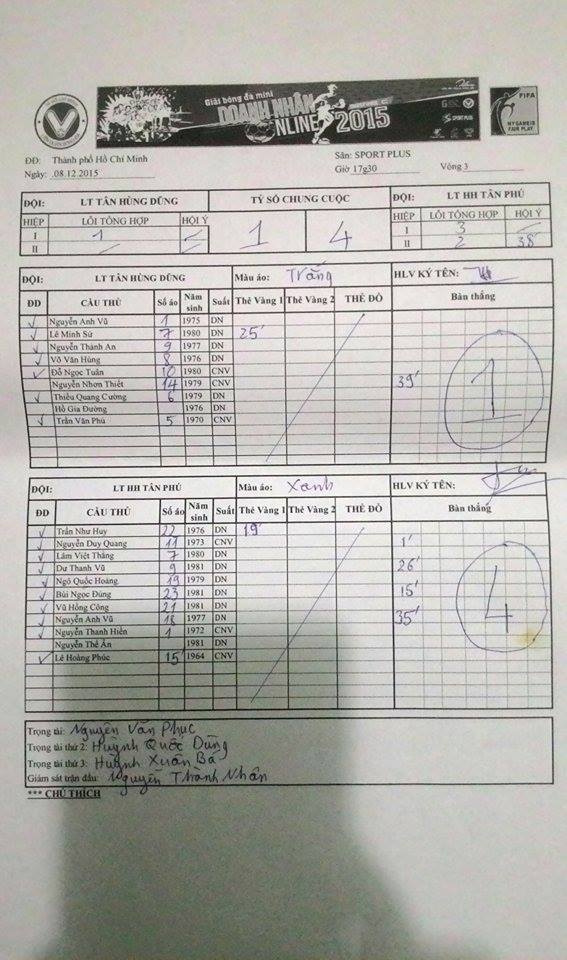 Giải bóng đá mini
DOANH NHÂN
NLINE 2015
SPORT PLUS
FIFA
MY GAME IS
FAIR PLAY
ĐĐ: Thành phố Hồ Chí Minh Sân: SPORT PLUS
Ngày: .08.12.2015 Giờ 17g30 Vòng 3
ĐỘI: LT TÂN HÙNG DŨNG TỶ SỐ CHUNG CUỘC ĐỘI: LT HH TÂN PHÚ
HIỆP LỖI TỔNG HỢP HỘI Ý 1 4 HIỆP LỖI TỔNG HỢP HỘI Ý
I 1 I 3
II II 2 38'
ĐỘI: LT TÂN HÙNG DŨNG Màu áo: Trắng HLV KÝ TÊN:
ĐD CẦU THỦ Số áo Năm sinh Suất Thẻ Vàng 1 Thẻ Vàng 2 THẺ ĐỎ Bàn thắng
Nguyễn Anh Vũ 1 1975 DN
Lê Minh Sứ 7 1980 DN 25'
Nguyễn Thành An 9 1977 DN
Võ Văn Hùng 8 1976 DN
Đỗ Ngọc Tuấn 10 1980 CNV
Nguyễn Nhơn Thiết 14 1979 CNV 39'
Thiều Quang Cường 6 1979 DN
Hồ Gia Đường 1976 DN
Trần Văn Phú 5 1970 CNV
1
ĐỘI: LT HH TÂN PHÚ Màu áo: Xanh HLV KÝ TÊN:
ĐD CẦU THỦ Số áo Năm sinh Suất Thẻ Vàng 1 Thẻ Vàng 2 THẺ ĐỎ Bàn thắng
Trần Như Huy 22 1976 DN 19'
Nguyễn Duy Quang 11 1973 CNV 1'
Lâm Việt Thắng 7 1980 DN
Dư Thanh Vũ 9 1981 DN 26'
Ngô Quốc Hoàng 19 1979 DN
Bùi Ngọc Dũng 23 1981 DN 15'
Vũ Hồng Công 21 1981 DN
Nguyễn Anh Vũ 18 1977 DN 35'
Nguyễn Thanh Hiền 1 1972 CNV
Nguyễn Thế Ân 1981 DN
Lê Hoàng Phúc 15 1964 CNV
4
Trọng tài: Nguyễn Văn Phúc
Trọng tài thứ 2: Huỳnh Quốc Dũng
Trọng tài thứ 3: Huỳnh Xuân Bá
Giám sát trận đấu: Nguyễn Thành Nhân
*** CHÚ THÍCH